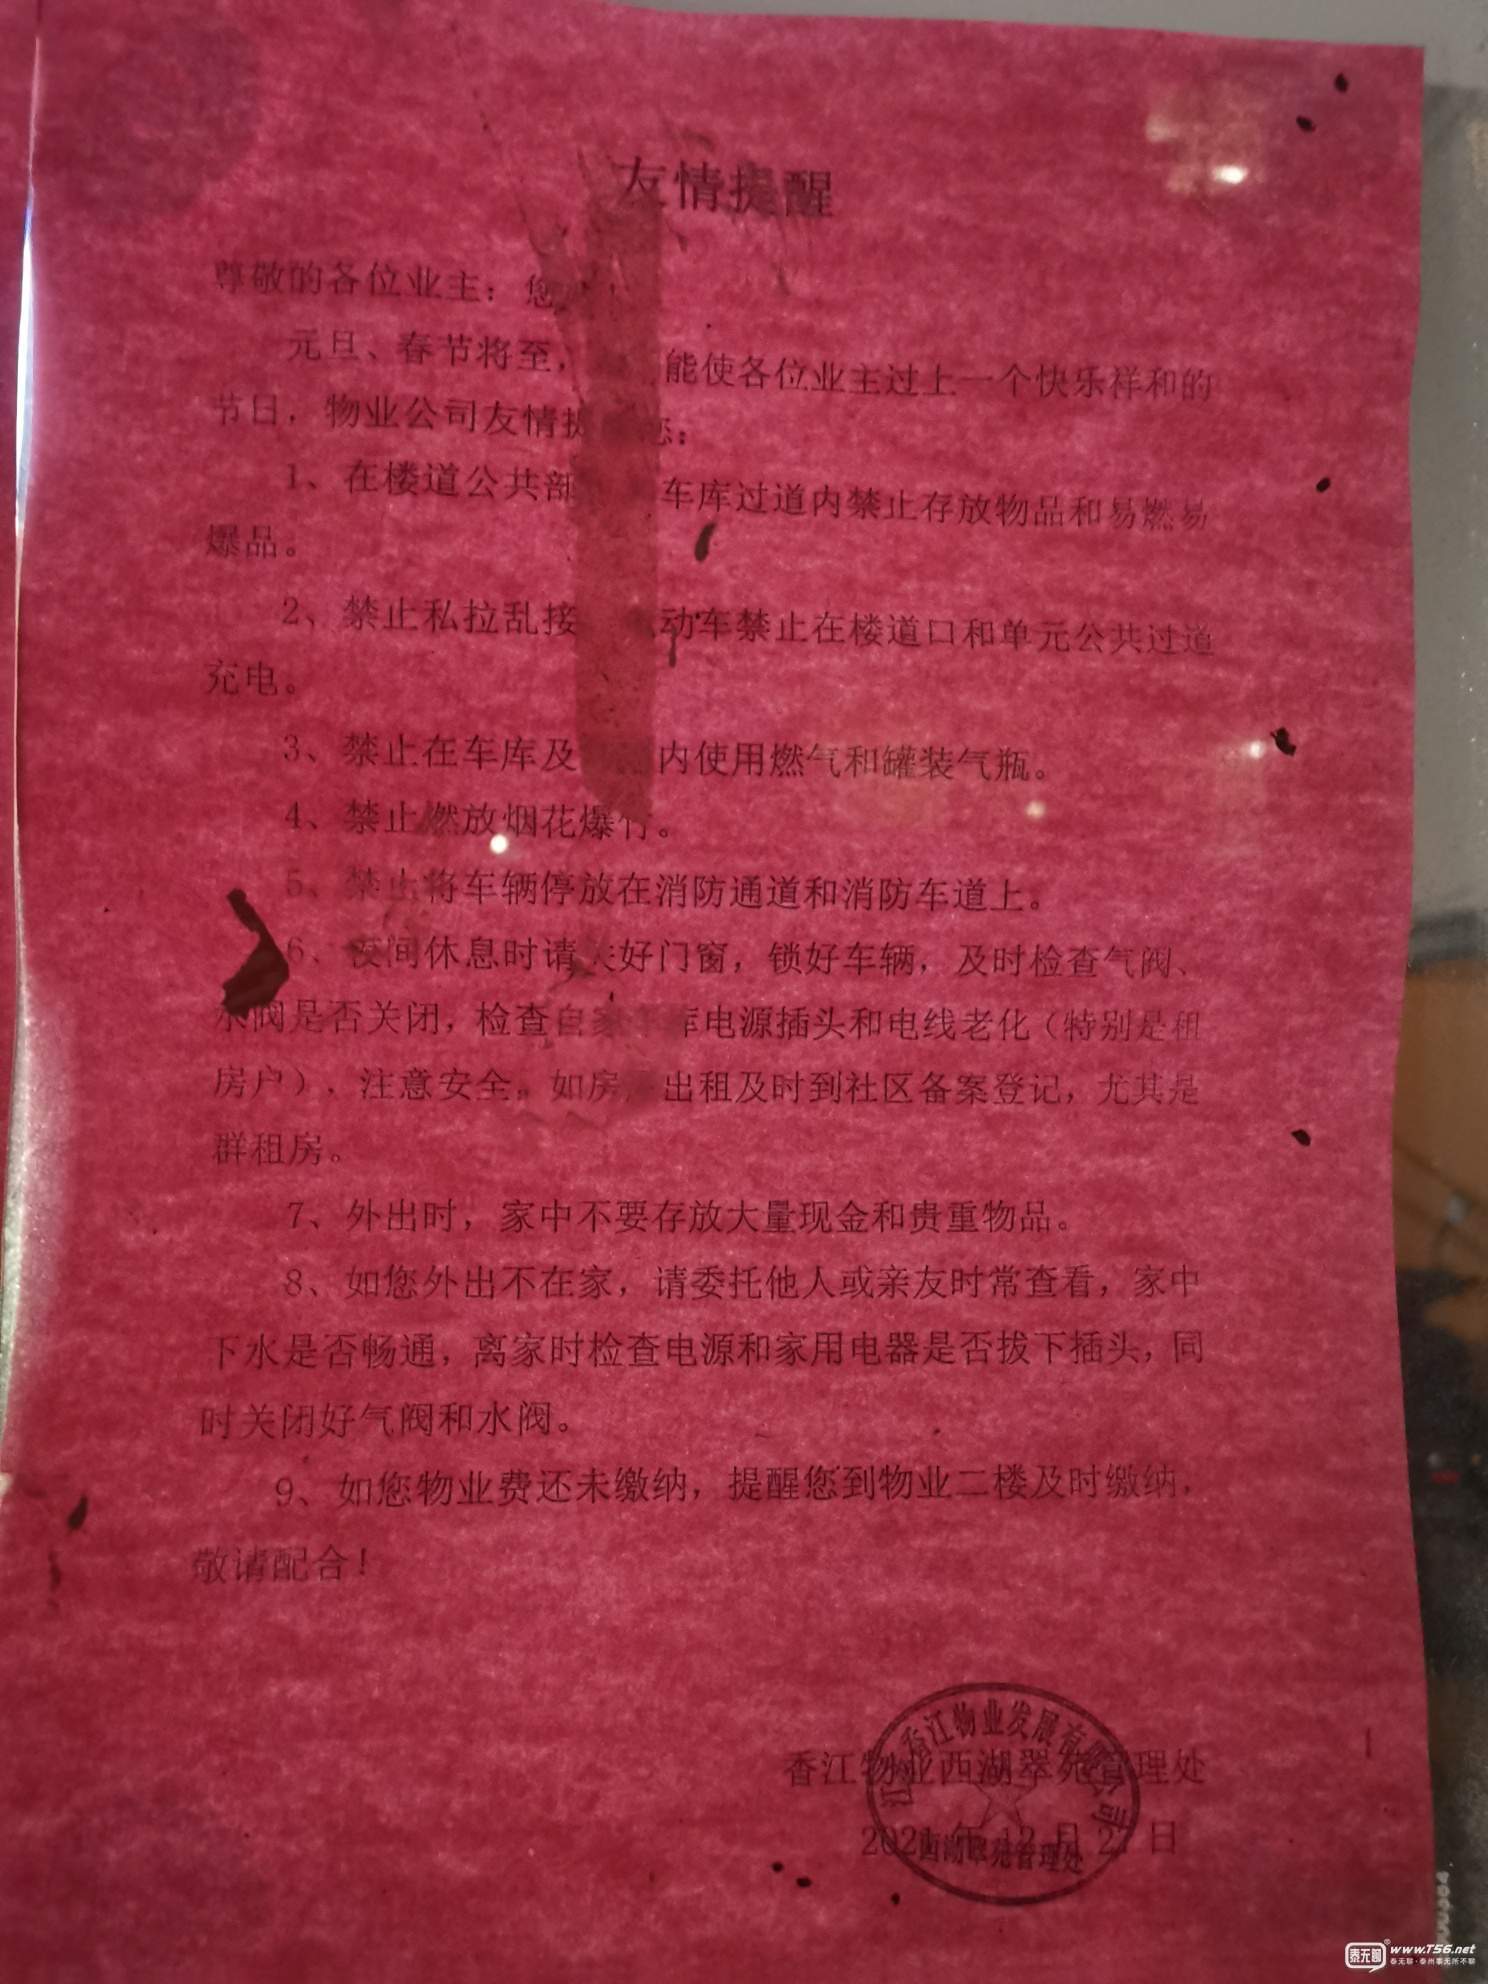 友情提醒
尊敬的各位业主：您
元旦、春节将至，能使各位业主过上一个快乐祥和的
节日，物业公司友情提您：
1、在楼道公共部车库过道内禁止存放物品和易燃易
爆品。
2、禁止私拉乱接动车禁止在楼道口和单元公共过道
充电。
3、禁止在车库及内使用燃气和罐装气瓶。
4、禁止燃放烟花爆竹。
5、禁止将车辆停放在消防通道和消防车道上。
6、夜间休息时请关好门窗，锁好车辆，及时检查气阀、
水阀是否关闭，检查自家车库电源插头和电线老化（特别是租
房户）．注意安全。如房出租及时到社区备案登记，尤其是
群租房。
7、外出时，家中不要存放大量现金和贵重物品。
8、如您外出不在家，请委托他人或亲友时常查看，家中
下水是否畅通，离家时检查电源和家用电器是否拔下插头，同
时关闭好气阀和水阀。
9、如您物业费还未缴纳，提醒您到物业二楼及时缴纳，
敬请配合！
香江物业发展有限公司
香江物业西湖翠苑管理处
2021年12月2日
西湖翠苑管理处
泰无聊
www.T56.net
泰无聊·泰州事无所不聊